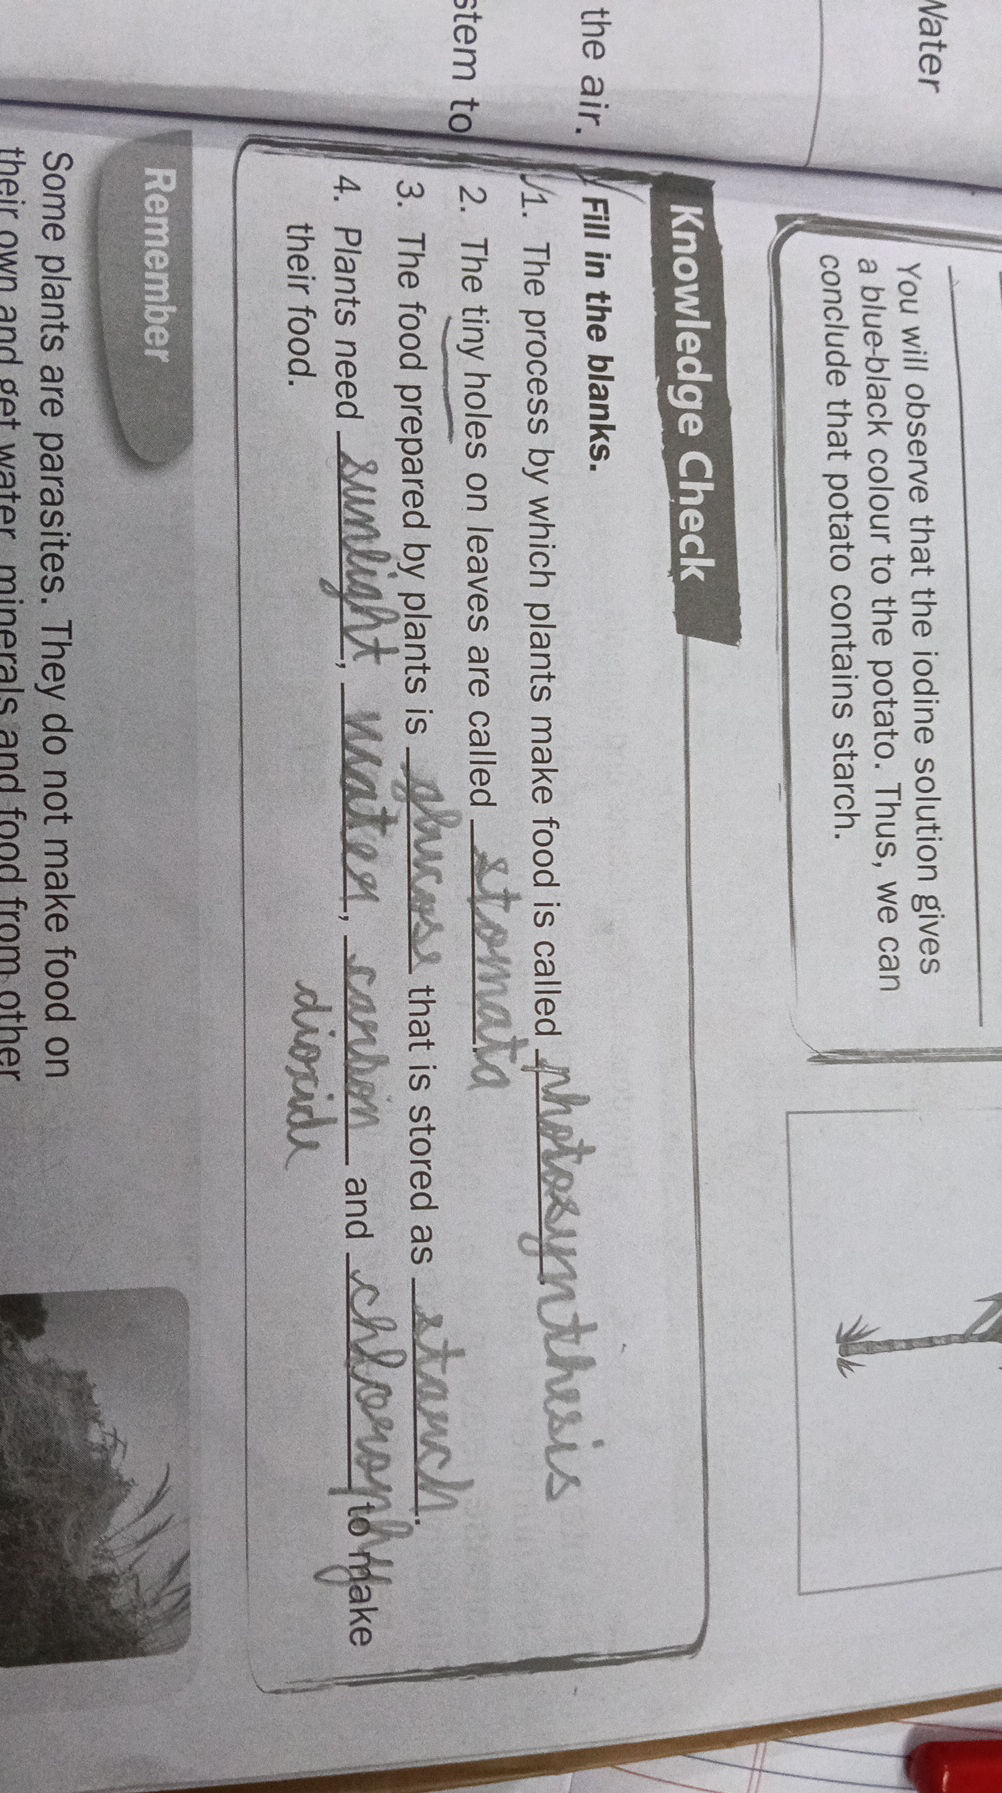 Water
the air.
stem to
You will observe that the iodine solution gives
a blue-black colour to the potato. Thus, we can
conclude that potato contains starch.
Knowledge Check
Fill in the blanks.
1. The process by which plants make food is called photosynthesis
2. The tiny holes on leaves are called stomata.
3. The food prepared by plants is glucose that is stored as starch.
4. Plants need sunlight, water, carbon and chlorophy to make
dioxide
their food.
Remember
Some plants are parasites. They do not make food on
their own and get water, minerals and food from other